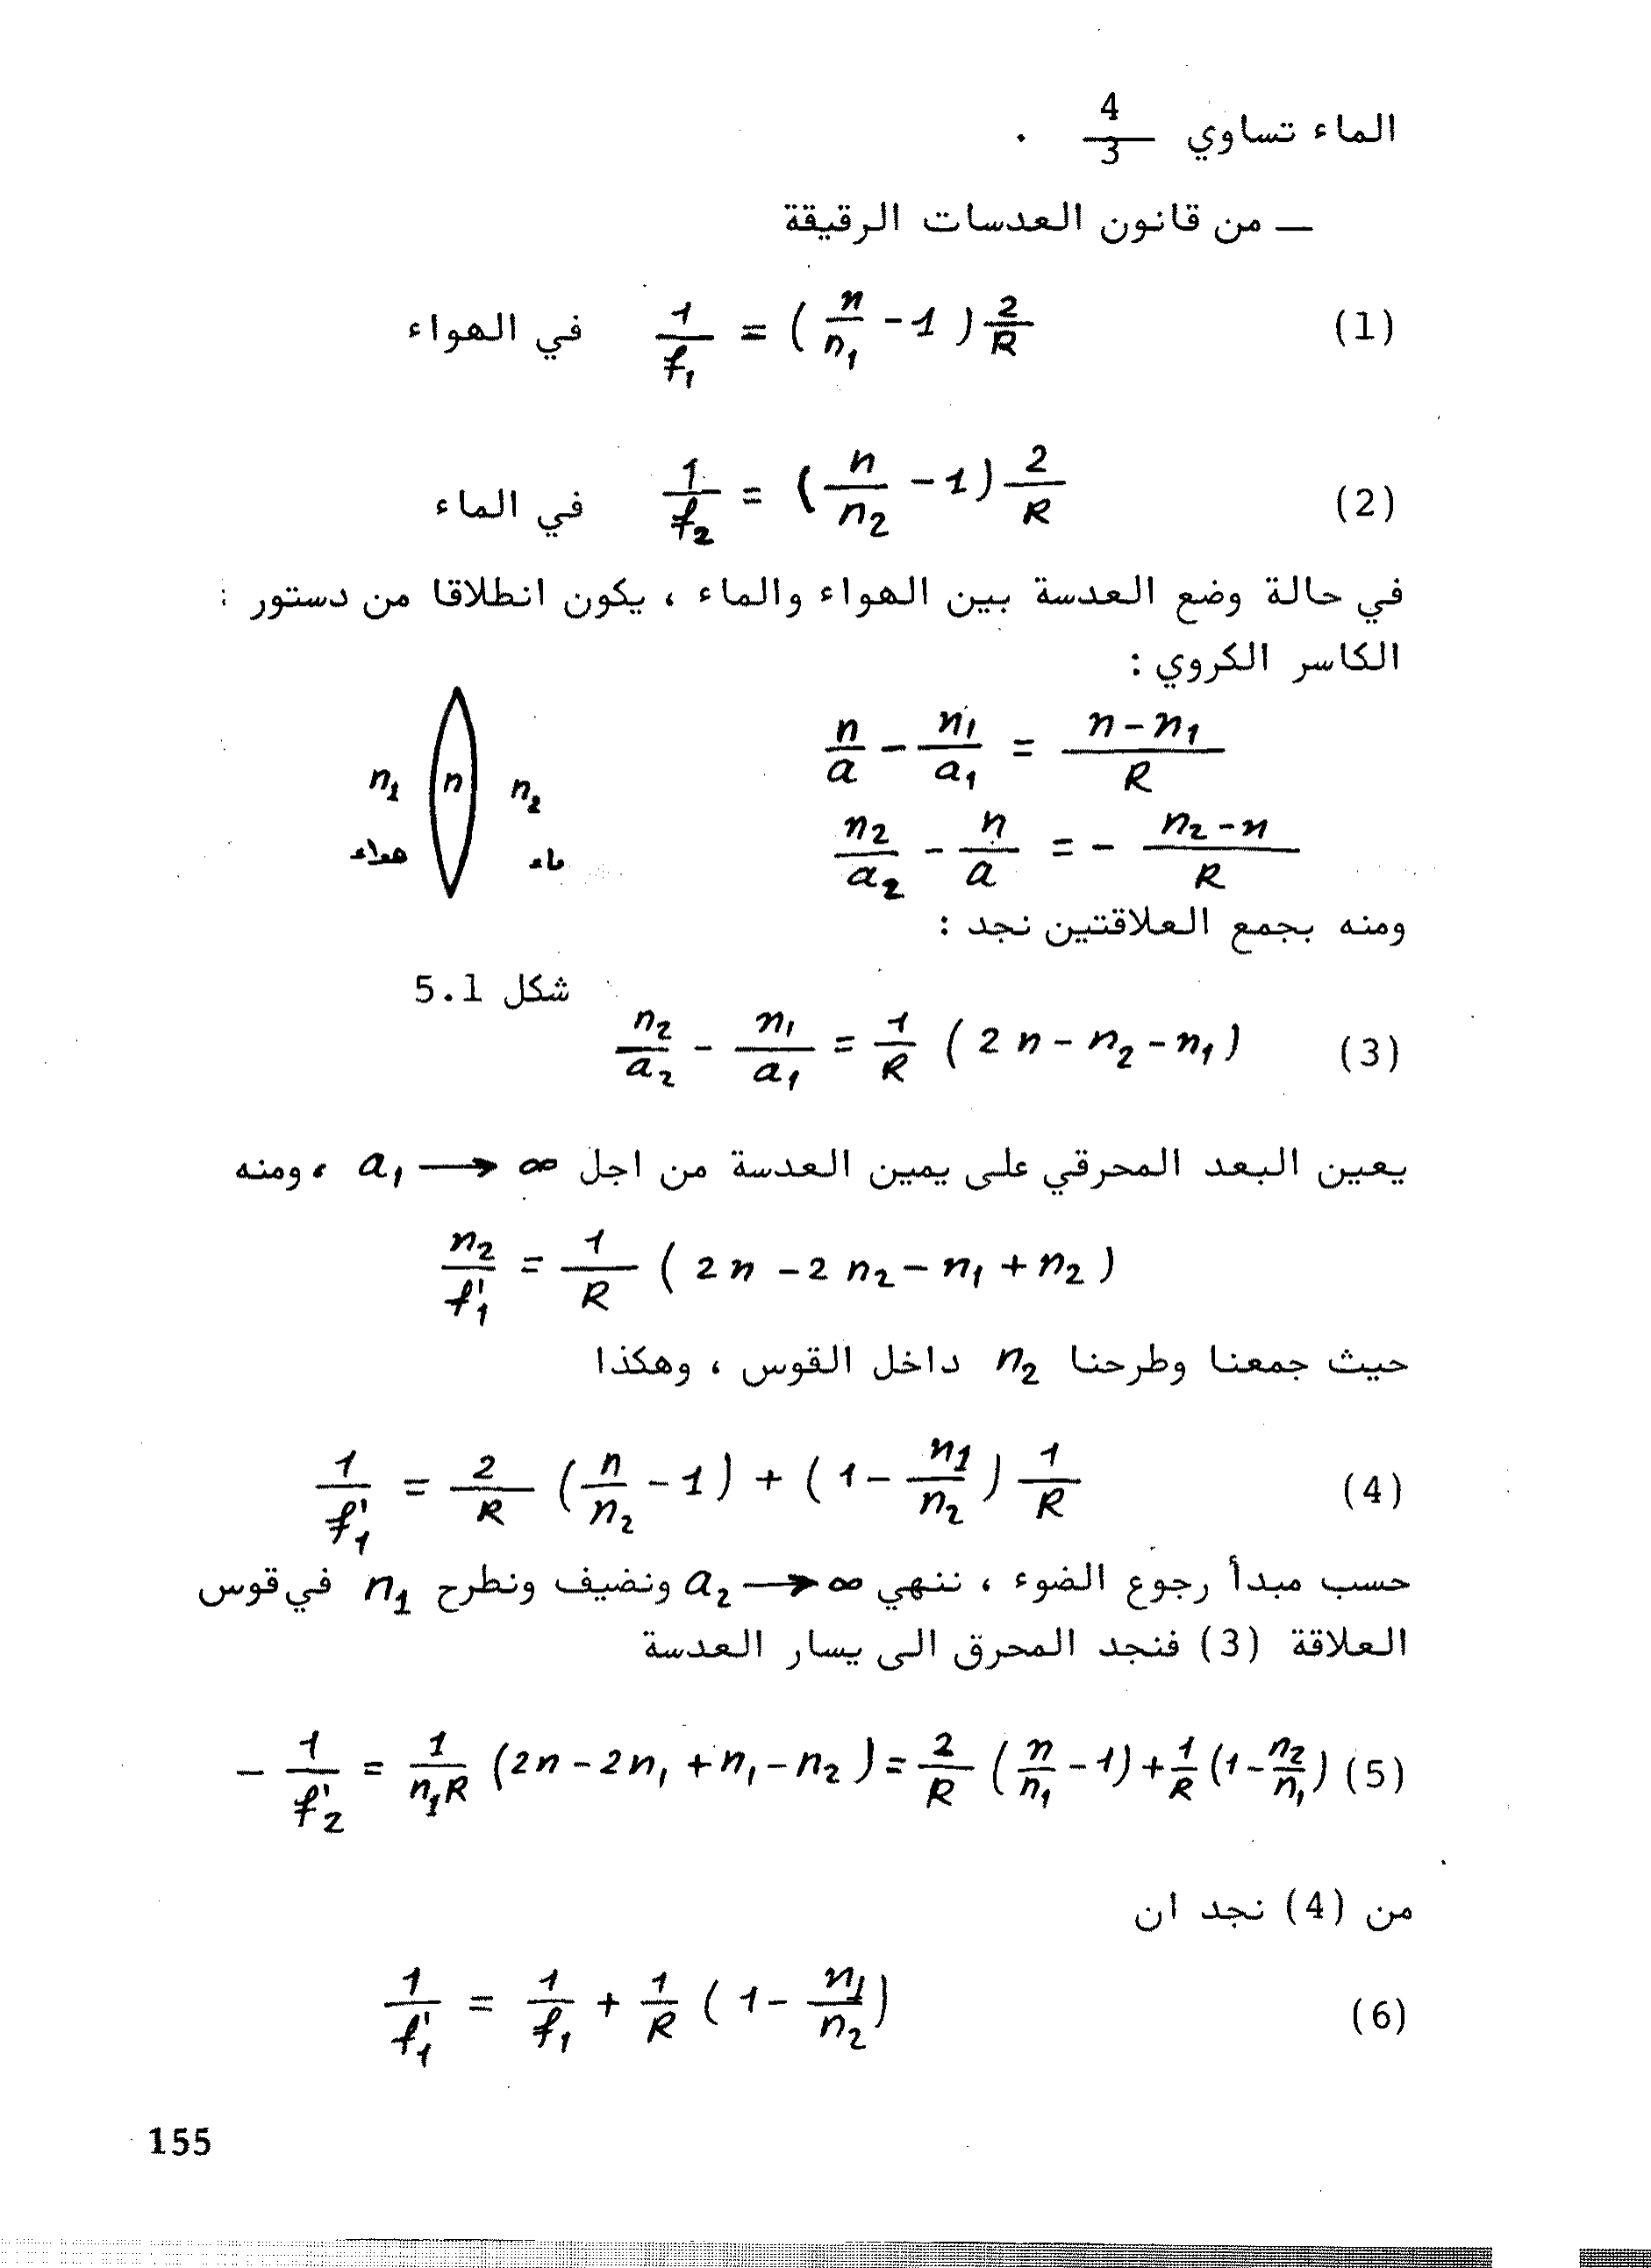 الماء تساوي 4/3 .
— من قانون العدسات الرقيقة
(1) 1/f₁ = (n/n₁ - 1) 2/R في الهواء
(2) 1/f₂ = (n/n₂ - 1) 2/R في الماء
في حالة وضع العدسة بين الهواء والماء ، يكون انطلاقا من دستور :
الكاسر الكروي :
n/a - n₁/a₁ = (n - n₁)/R
n₁ n n₂
n₂/a₂ - n/a = - (n₂ - n)/R
هواء ماء
ومنه بجمع العلاقتين نجد :
شكل 5.1
n₂/a₂ - n₁/a₁ = 1/R (2n - n₂ - n₁) (3)
يعين البعد المحرقي على يمين العدسة من اجل a₁ → ∞ ، ومنه
n₂/f'₁ = 1/R (2n - 2n₂ - n₁ + n₂)
حيث جمعنا وطرحنا n₂ داخل القوس ، وهكذا
1/f'₁ = 2/R (n/n₂ - 1) + (1 - n₁/n₂) 1/R (4)
حسب مبدأ رجوع الضوء ، ننهي a₂ → ∞ ونضيف ونطرح n₁ في قوس
العلاقة (3) فنجد المحرق الى يسار العدسة
- 1/f'₂ = 1/(n₁R) (2n - 2n₁ + n₁ - n₂) = 2/R (n/n₁ - 1) + 1/R (1 - n₂/n₁) (5)
من (4) نجد ان
1/f'₁ = 1/f₁ + 1/R (1 - n₁/n₂) (6)
155